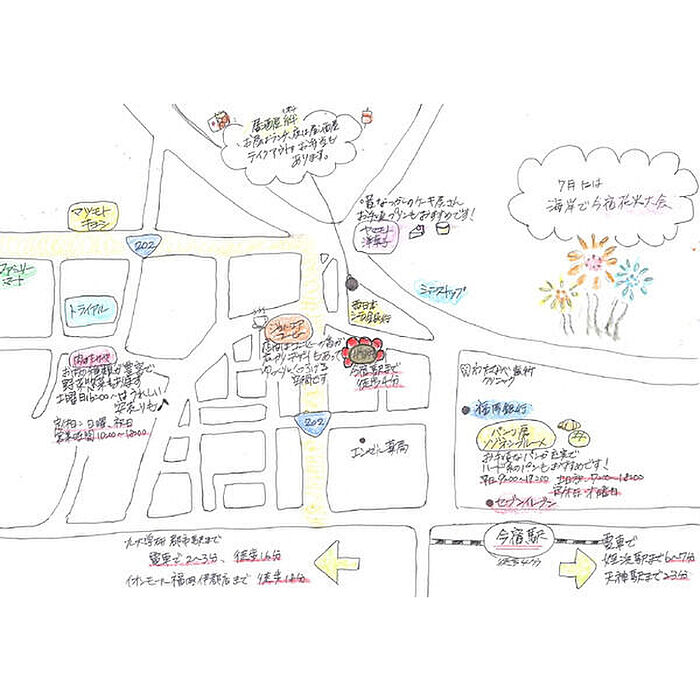 居酒屋 絆
お昼はランチ、夜は居酒屋
テイクアウトお弁当も
あります。
7月には
海岸で今宿花火大会
マツモト
キヨシ
202
ファミリー
マート
トライアル
お肉の種類が豊富で
野菜惣菜もあります
土曜日16:00〜はうれしい
安売りも
定休日:日曜、祝日
営業時間 10:00〜18:00
昔なつかしのケーキ屋さん
お手製プリンもおすすめです!
洋菓子
ミニストップ
西日本
シティ銀行
コーヒー
今宿駅まで
徒歩4分
202
エンゼル薬局
クリニック
福岡銀行
パン屋
お手頃なパンが充実で
ハード系のパンもおすすめです!
平日 9:00〜18:00
定休日 水曜日
セブンイレブン
今宿駅
徒歩4分
九大学研都市駅まで
電車で2〜3分、徒歩16分
イオンモール福岡伊都店まで 徒歩18分
電車で
姪浜駅まで6〜7分
天神駅まで23分